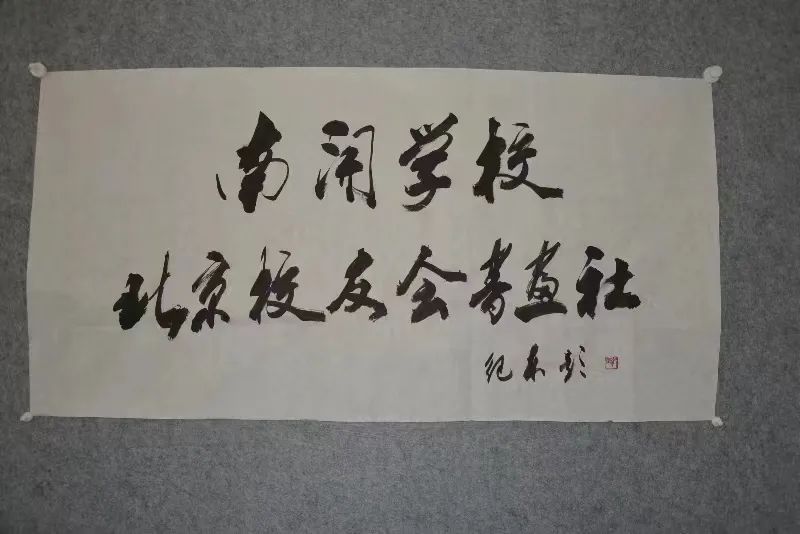 南开学校
北京校友会书画社
纪东彭